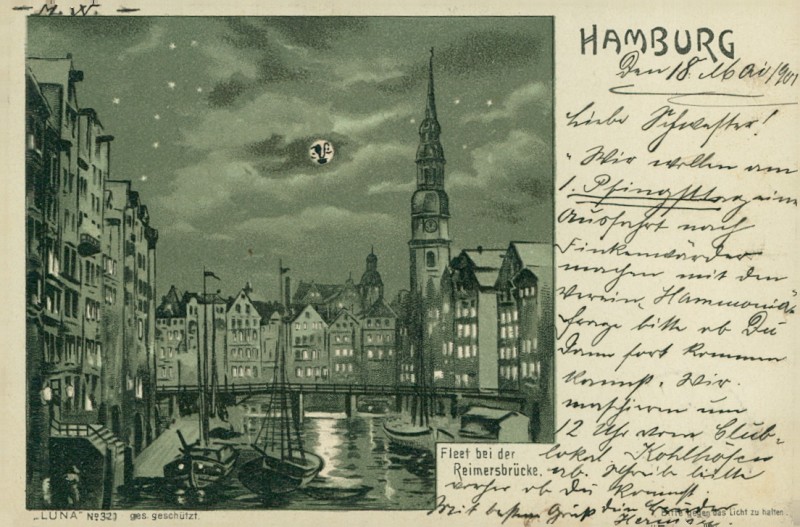 M. W.
HAMBURG
Den 18. Mai 1901
Liebe Schwester!
Wir wollen am
1. Pfingsttag eine
Ausfahrt nach
Finkenwärder
machen mit den
Verein „Hammonia"
frage bitte ob Du
dann fort kommen
kannst. Wir
maschieren um
12 Uhr vom Club-
lokal Kohlhöfen
ab. Schreibe bitte
vorher ob Du kommst
Mit bestem Gruß dein Bruder
Fleet bei der
Reimersbrücke.
„LUNA" No 323 ges. geschützt.
Bitte gegen das Licht zu halten.